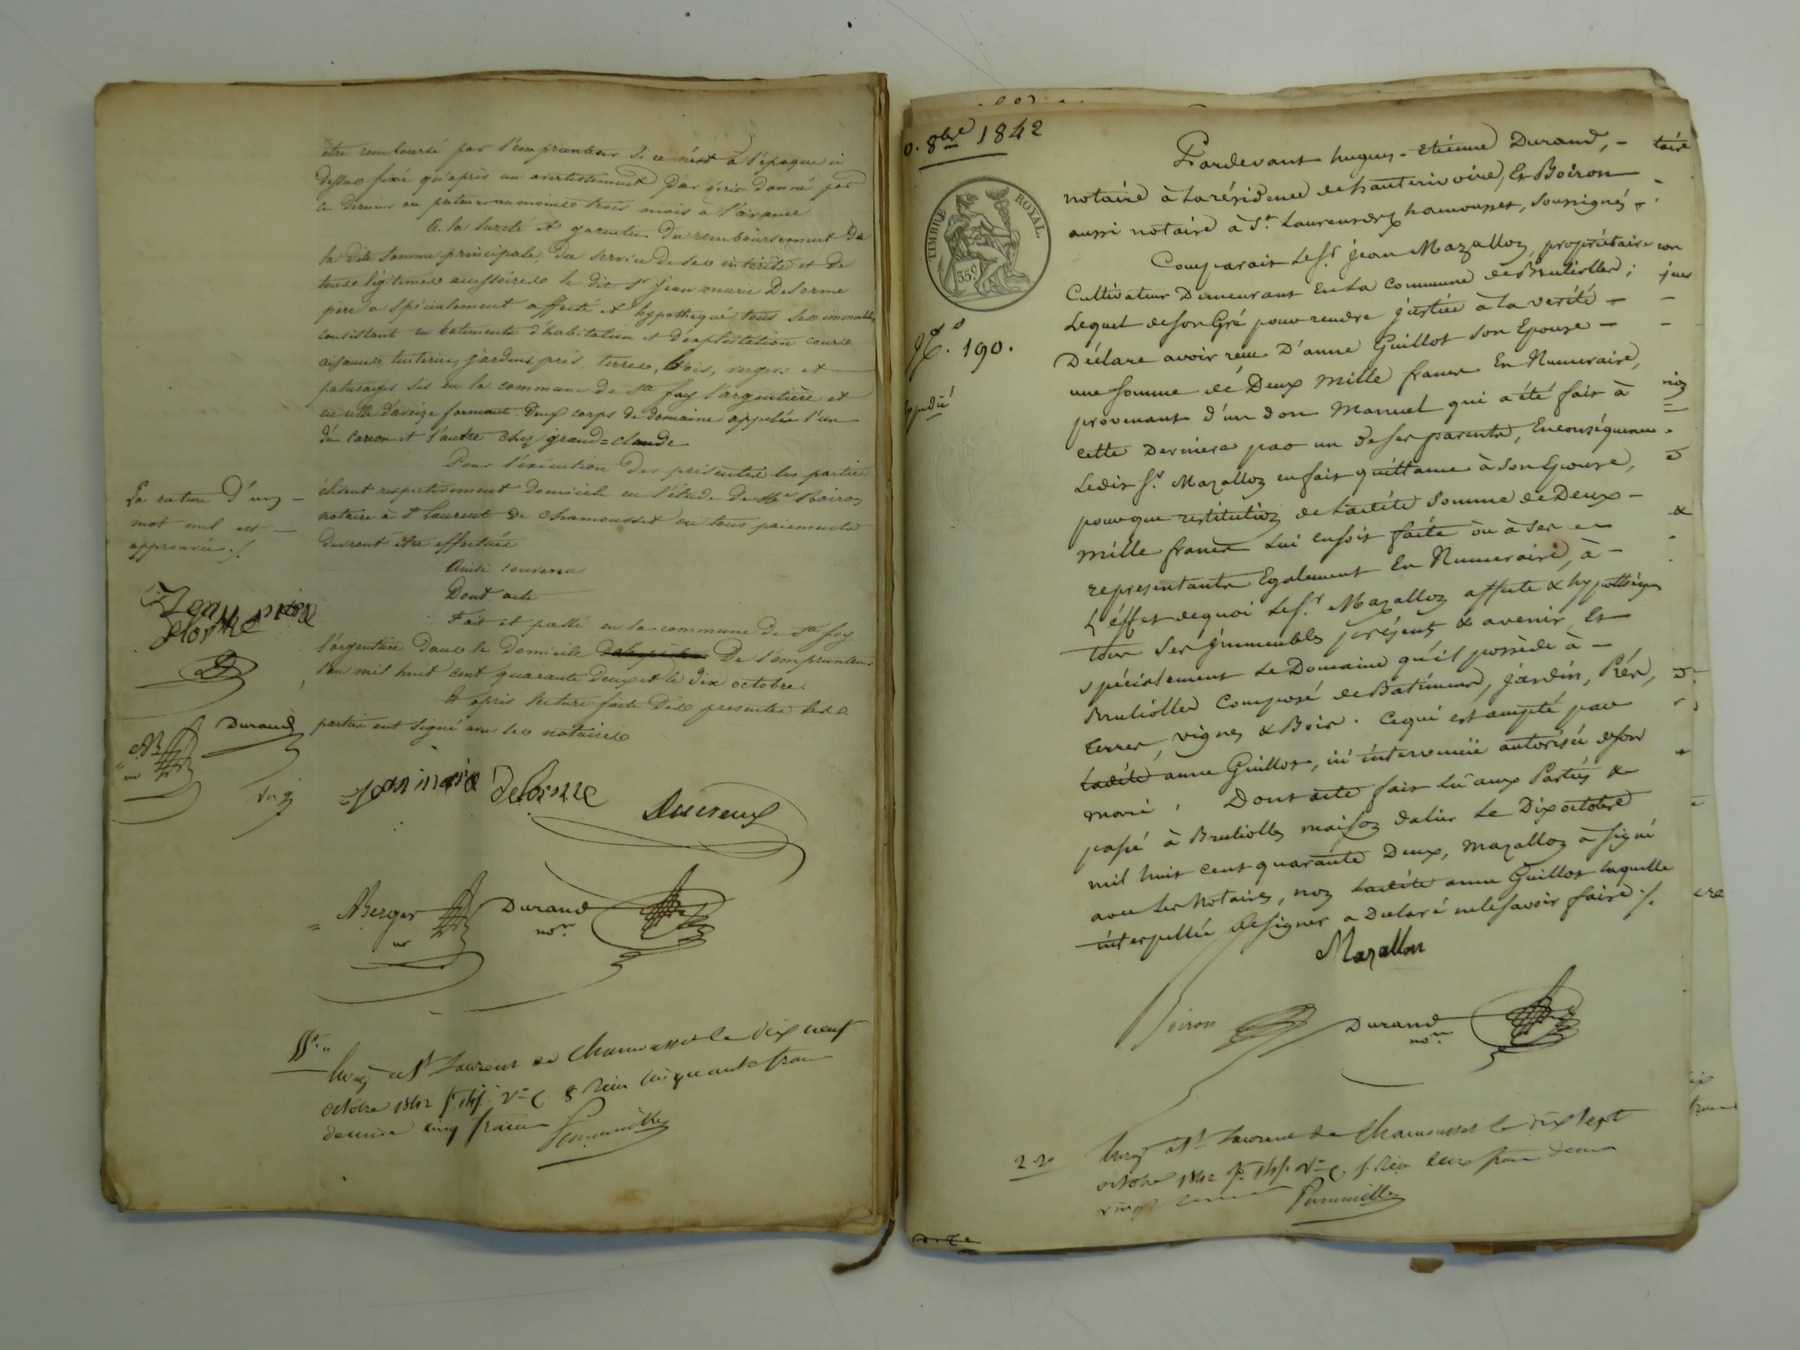 être remboursé par l'emprunteur si ce n'est à l'époque ci
dessus fixée qu'après un avertissement par écrit donné par
ce dernier au moins trois mois à l'avance
A la sureté et garantie du remboursement de
la dite somme principale, du service de ses intérêts et de
tous légitimes accessoires le dit sr jean marie Delorme
père a spécialement affecté et hypothéqué tous ses immeubles
consistant en batiments d'habitation et d'exploitation cours
aisances, jardins, prés, terres, bois, vergers et
paturages sis en la commune de ste foy l'argentière et
en celle d'aveize formant deux corps de domaine appelés l'un
de carron et l'autre chez grand=claude
Pour l'exécution des présentes les parties
élisent respectivement domicile en l'étude de Me Boiron
notaire à st Laurent de chamousset où tous paiements
devront être effectués
Ainsi convenu
Dont acte
Fait et passé en la commune de ste foy
l'argentière dans le domicile De l'emprunteur
l'an mil huit cent quarante deux et le dix octobre
Et après lecture faite des présentes les
parties ont signé avec les notaires
La rature d'un
mot nul est
approuvée ./.
Jean Marie
Delorme
Durand
jean marie delorme
Ducreux
ABerger
Durand
nore
à St Laurent de Chamousset le dix neuf
octobre 1842 cinquante fran
cinq francs
10. 8bre 1842
TIMBRE ROYAL.
35 c
No. 190.
Expédié
Pardevant hugues-étienne Durand, -
notaire à la résidence de hauterivoire, Et Boiron
aussi notaire à St. Laurent de chamousset, soussignés
Comparait le Sr. jean Mazallon, propriétaire
Cultivateur Demeurant En La Commune de Brulioller ;
Lequel de son Gré pour rendre justice à la verité -
Déclare avoir reçu D'anne Guillot son Epouse -
une somme de Deux Mille francs En Numeraire,
provenant d'un don Manuel qui a été fait à
cette Derniere par un de ses parents, En conséquence
Ledit Sr. Mazallon en fait quittance à Son Epouse,
pour que restitution de Ladite Somme de Deux -
mille francs Lui en soit faite ou à ses
représentants Egalement En Numeraire, à -
L'effet de quoi Le Sr. Mazallon affecte & hypothèque
tous ses immeubles présents & avenir, Et
spécialement Le Domaine qu'il possède à -
Brulioller Composé de Batiments, jardin, Prés,
terres, vignes & Bois. Ce qui est accepté par
Ladite anne Guillot, ici intervenüe autorisée de son
mari. Dont acte fait Lû aux Parties &
passé à Bruliolles maison dalier Le Dix octobre
mil huit cent quarante Deux, Mazallon à signé
avec Les Notaires, non Ladite anne Guillot laquelle
interpellée de signer a Declaré ne le savoir faire ./.
Mazallon
Boiron
Durand
nore
à St Laurent de Chamousset le dix sept
octobre 1842